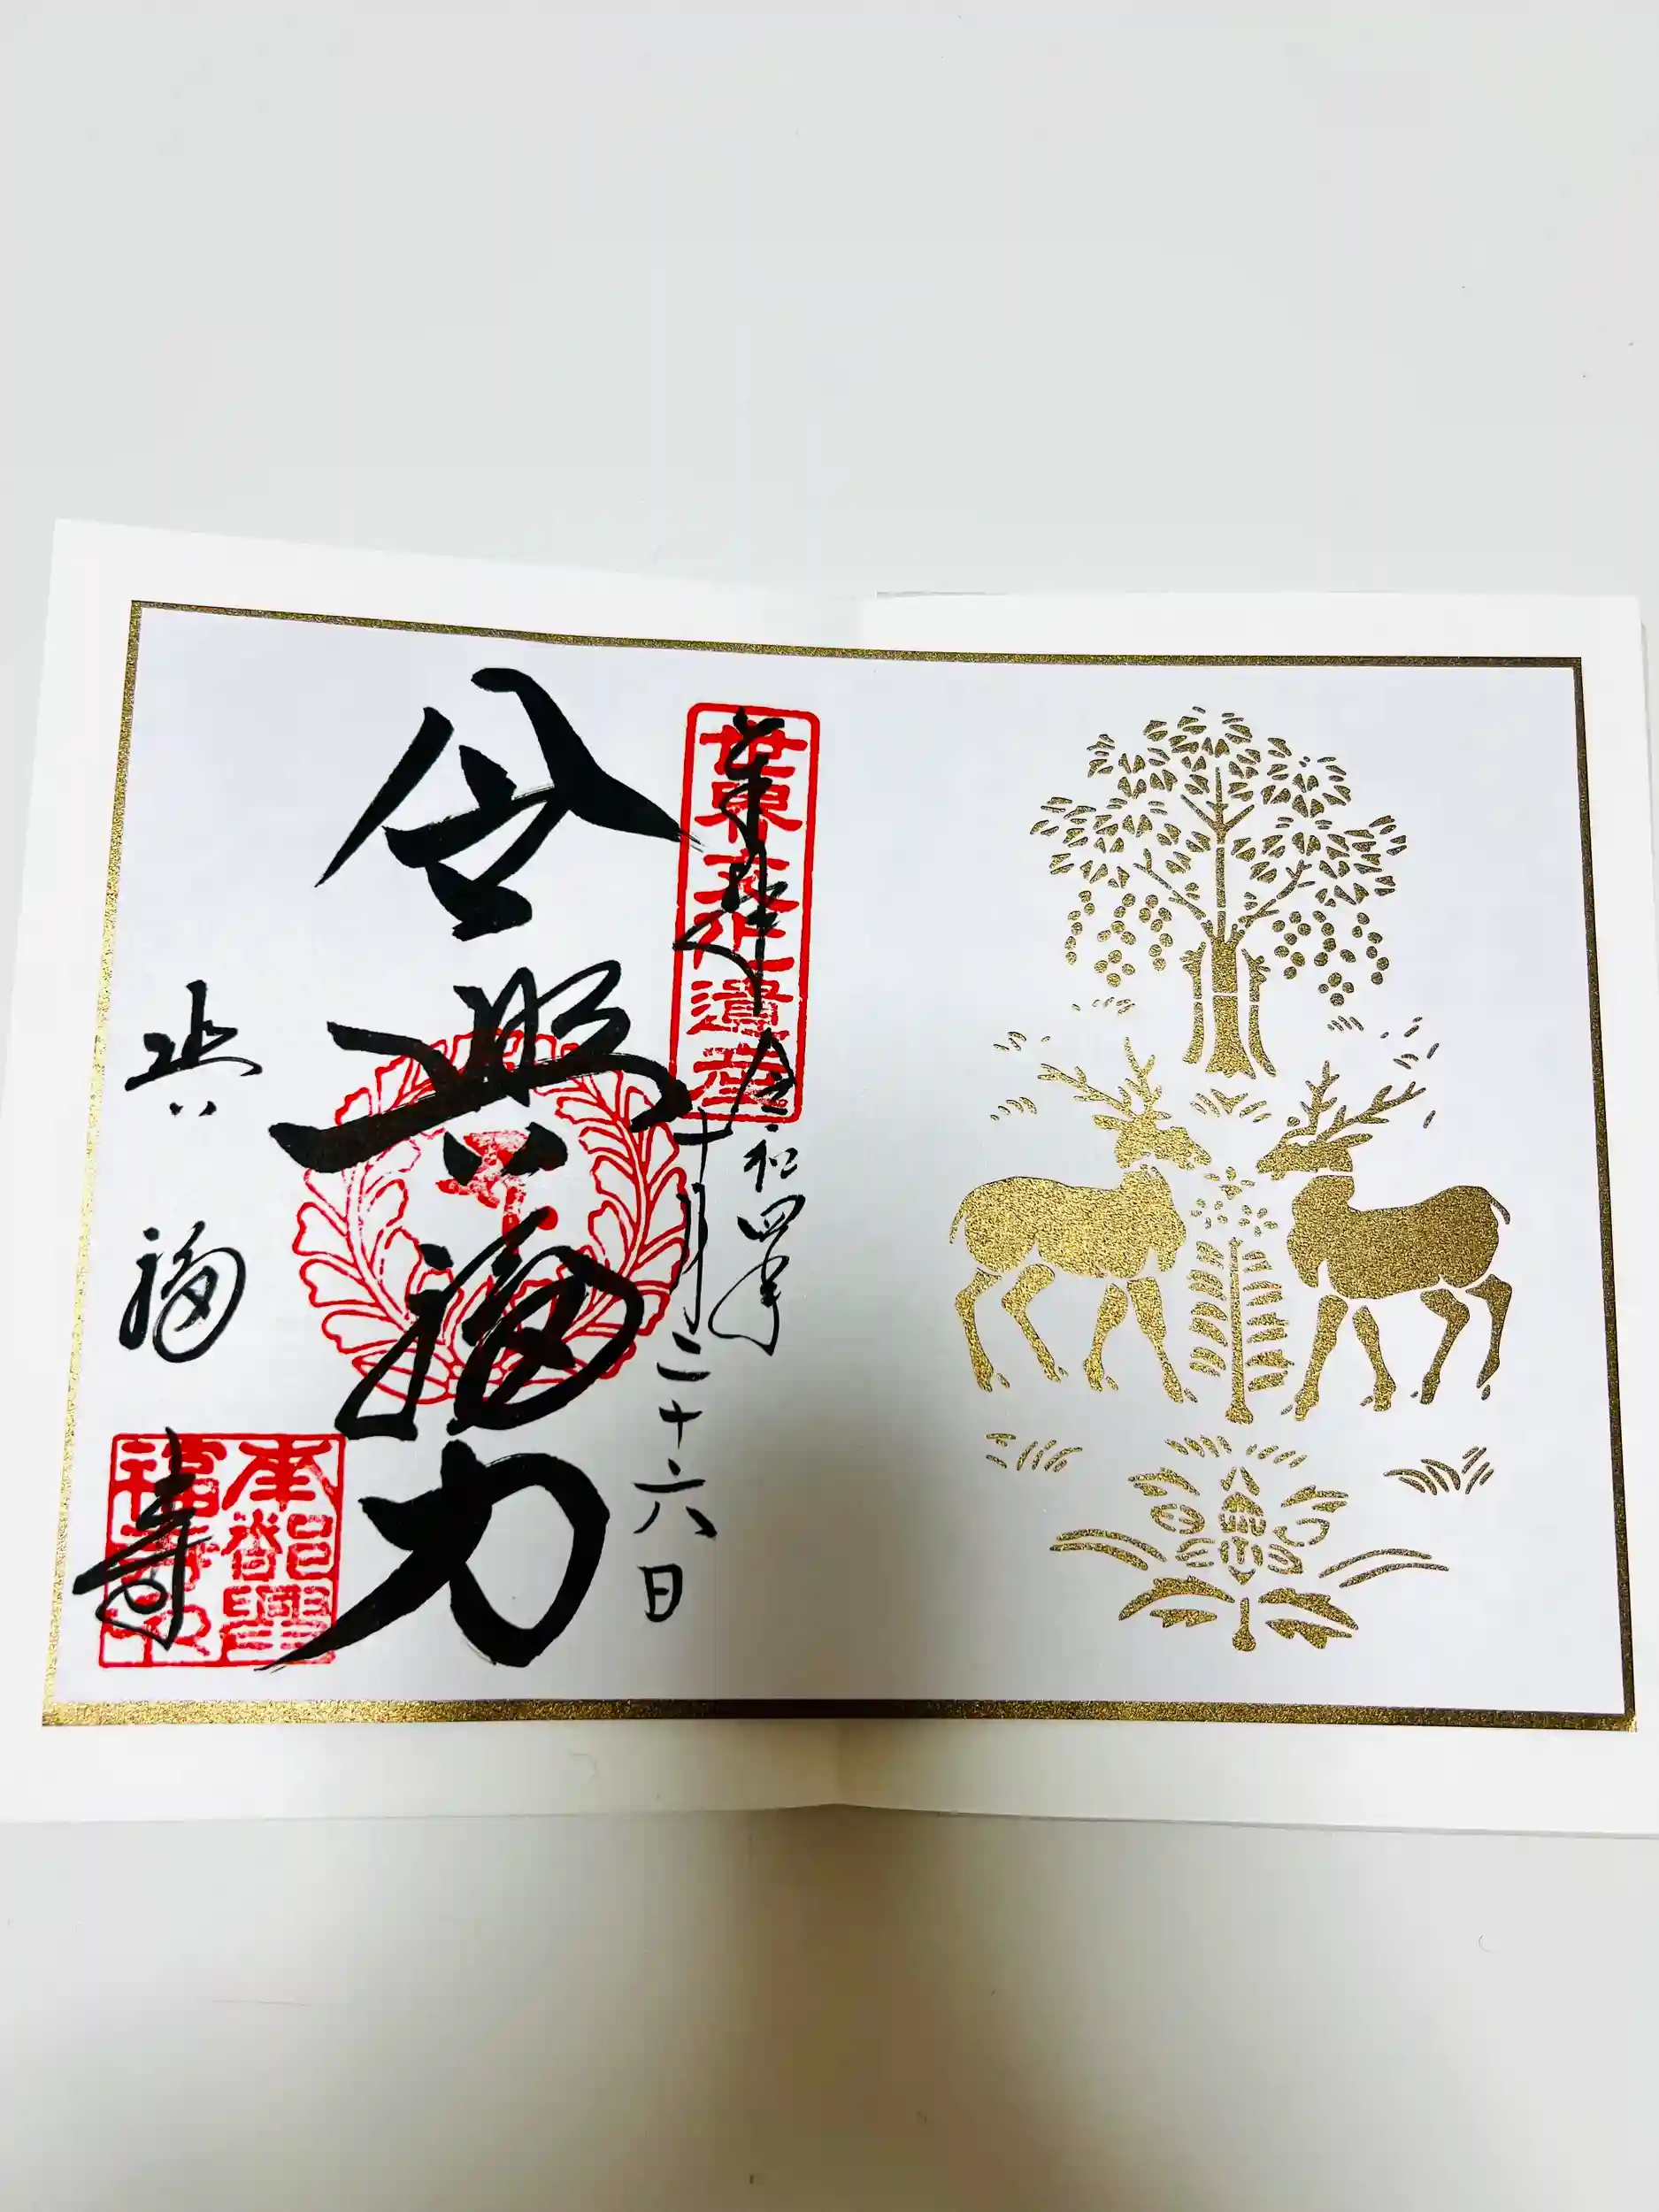 世界文化遺産
奉拝 令和四年
十月二十六日
令興福力
興福寺
南都興
福寺印